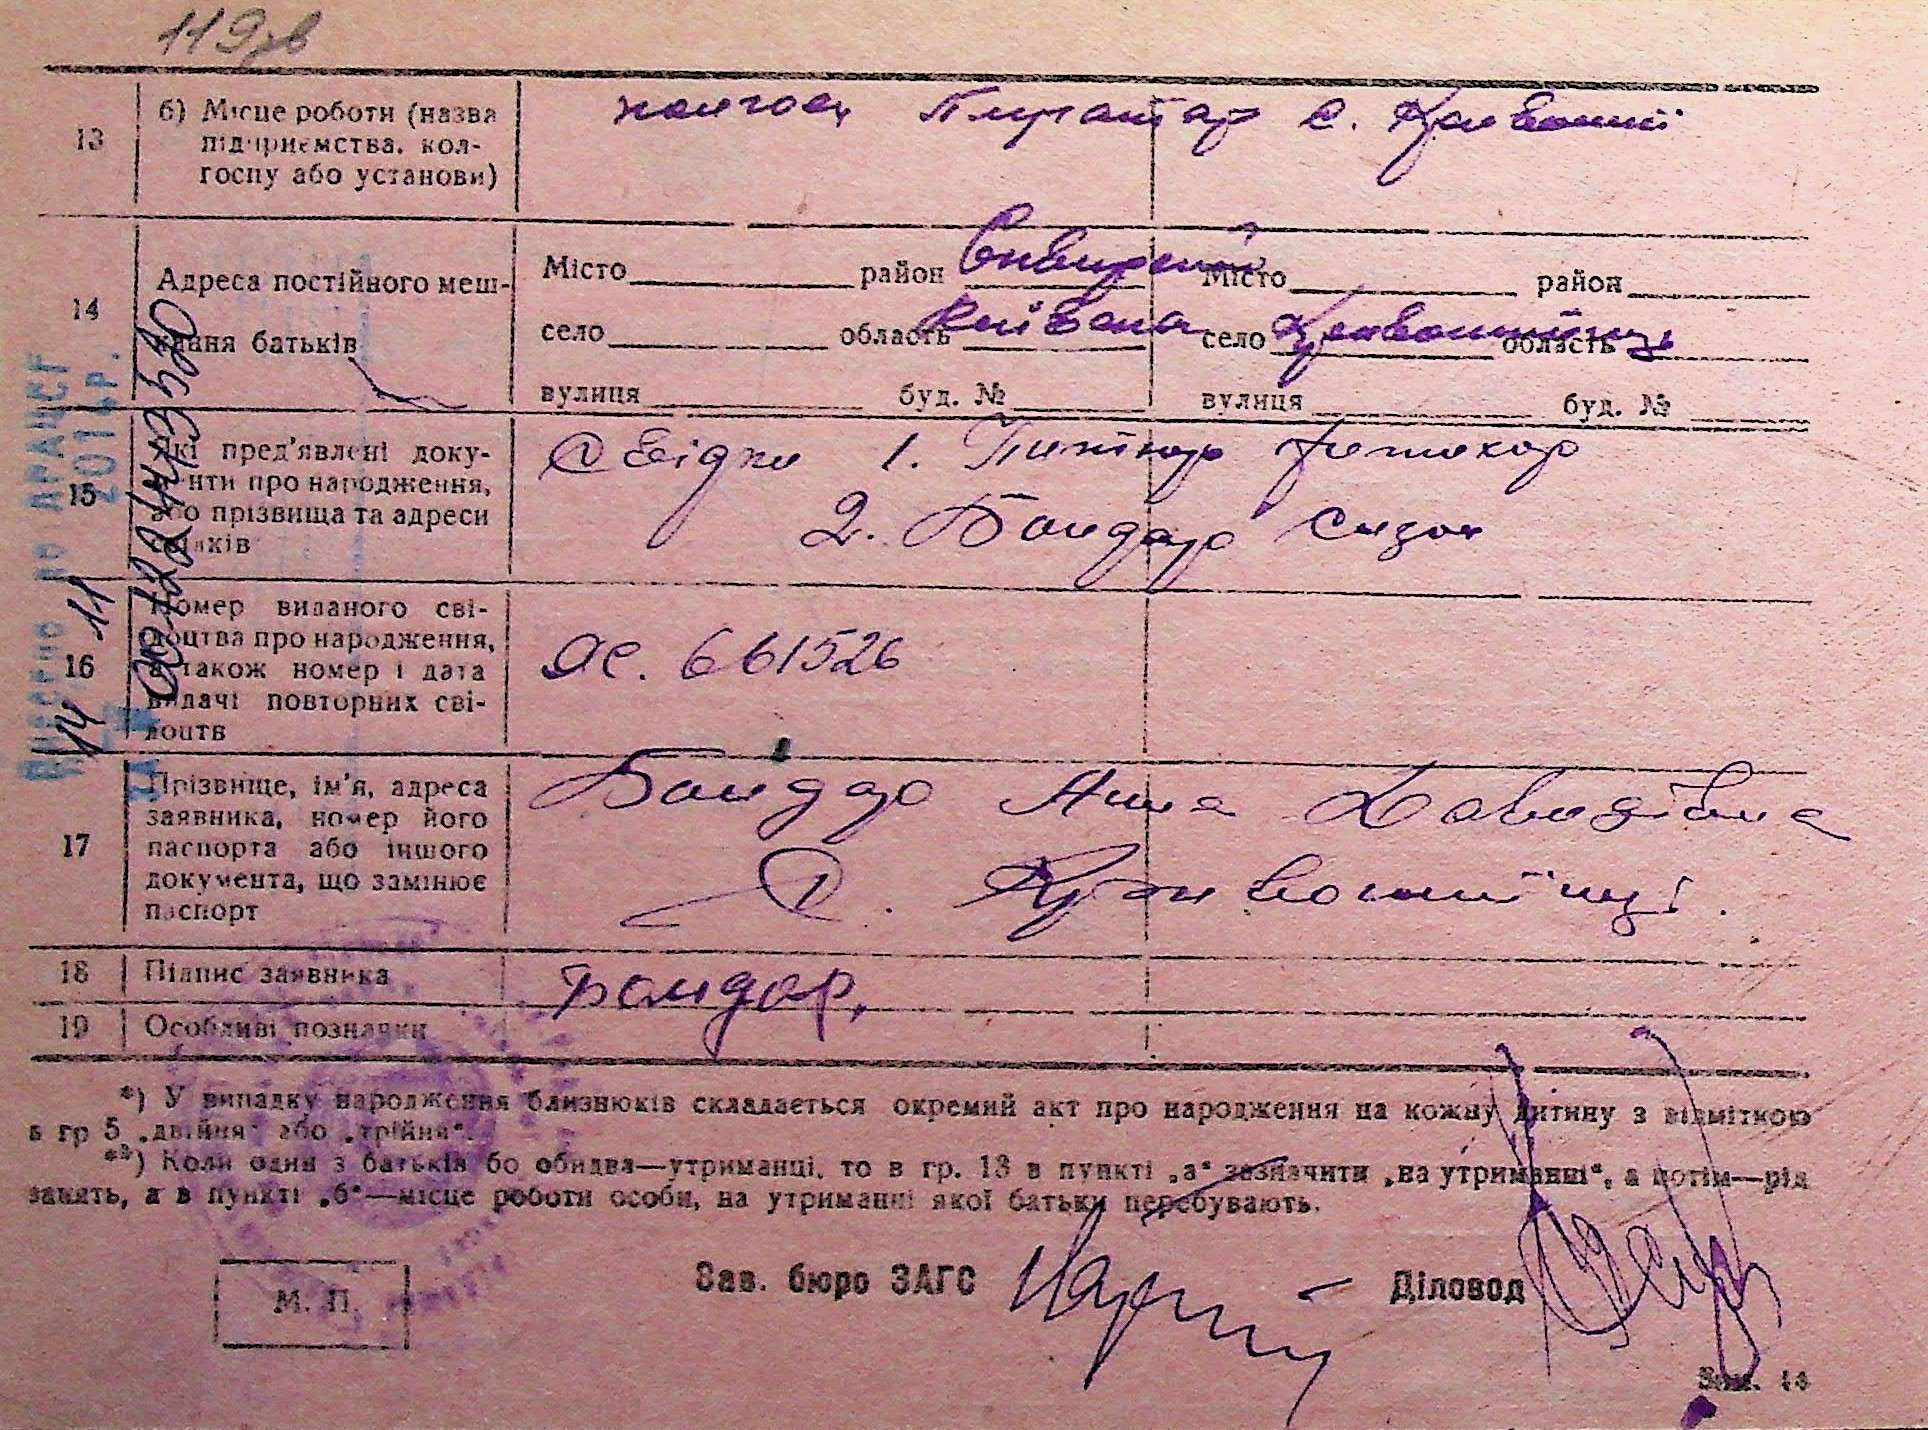 119зв
13
б) Місце роботи (назва
підприємства, кол-
госпу або установи)
колгосп с.
14
Адреса постійного меш-
кання батьків
Місто район Сквирский Місто район
село область Київська село Кривошиїнці область
вулиця буд. № вулиця буд. №
15
Які пред'явлені доку-
менти про народження,
або прізвища та адреси
свідків
Свідки 1.
2. Бондар Сизон
16
Номер виданого сві-
доцтва про народження,
а також номер і дата
видачі повторних сві-
доцтв
ЯС. 661526
17
Прізвище, ім'я, адреса
заявника, номер його
паспорта або іншого
документа, що замінює
паспорт
Бондар Анна Давидівна
с. Кривошиїнці.
18
Підпис заявника
Бондар,
19
Особливі позначки
*) У випадку народження близнюків складається окремий акт про народження на кожну дитину з відміткою
в гр 5 „двійня" або „трійня".
**) Коли один з батьків бо обидва—утриманці, то в гр. 13 в пункті „а" зазначити „на утриманні", а потім—рід
занять, а в пункті „б"—місце роботи особи, на утриманні якої батьки перебувають.
М. П.
Зав. бюро ЗАГС
Діловод
Зам. 14
14 11
2014р.